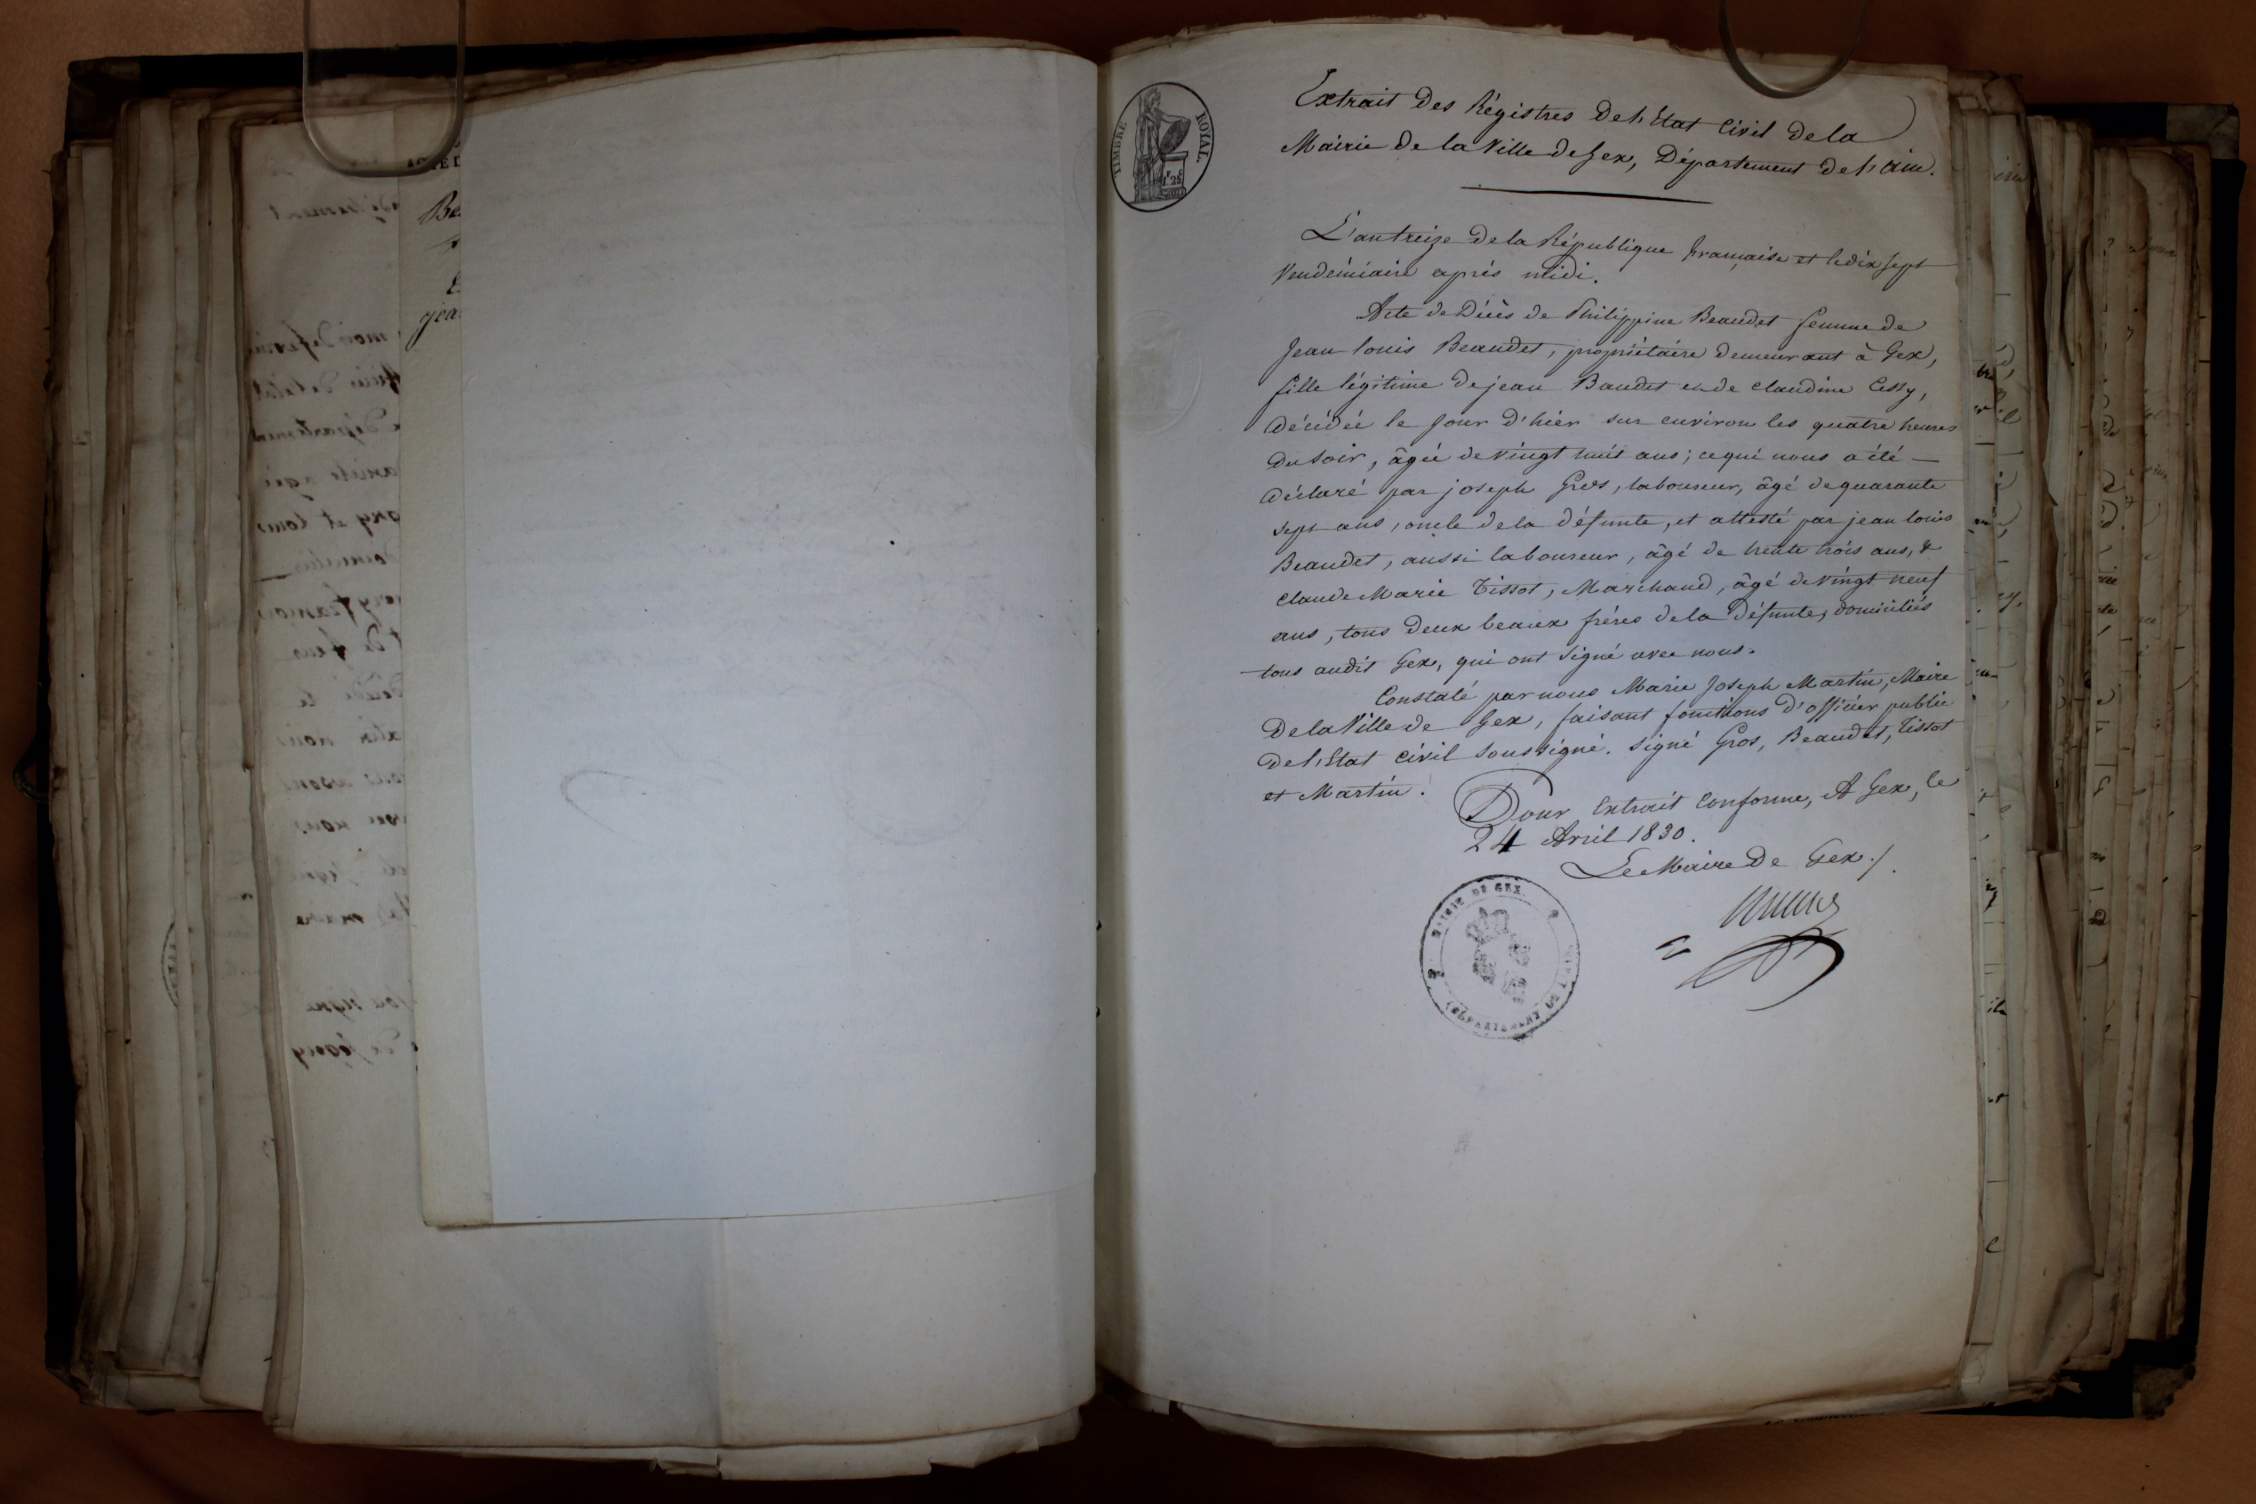 Be
jea
TIMBRE ROYAL.
1F 25
Extrait Des Régistres De l'Etat Civil de la
Mairie De la Ville de Gex, Département de l'ain.
L'an treize De la République française et le dix sept
Vendémiaire après midi.
Acte de Décès de Philippine Beaudet femme de
Jean louis Beaudet, propriétaire demeurant à Gex,
fille légitime de jean Baudet et de claudine Cessy,
Décédée le jour d'hier sur environ les quatre heures
Du soir, âgée de vingt huit ans; ce qui nous a été —
Déclaré par joseph Gros, laboureur, âgé de quarante
sept ans, oncle de la défunte, et attesté par jean louis
Beaudet, aussi laboureur, âgé de trente trois ans, &
claude Marie Tissot, Marchand, âgé de vingt neuf
ans, tous deux beaux frères de la Défunte, domiciliés
tous audit Gex, qui ont signé avec nous.
Constaté par nous Marie Joseph Martin, Maire
De la Ville de Gex, faisant fonctions d'officier public
De l'Etat Civil soussigné. signé Gros, Beaudet, Tissot
et Martin.
Pour Extrait Conforme, A Gex, le
24 Avril 1830.
Le Maire De Gex.
MAIRIE DE GEX
DEPARTEMENT